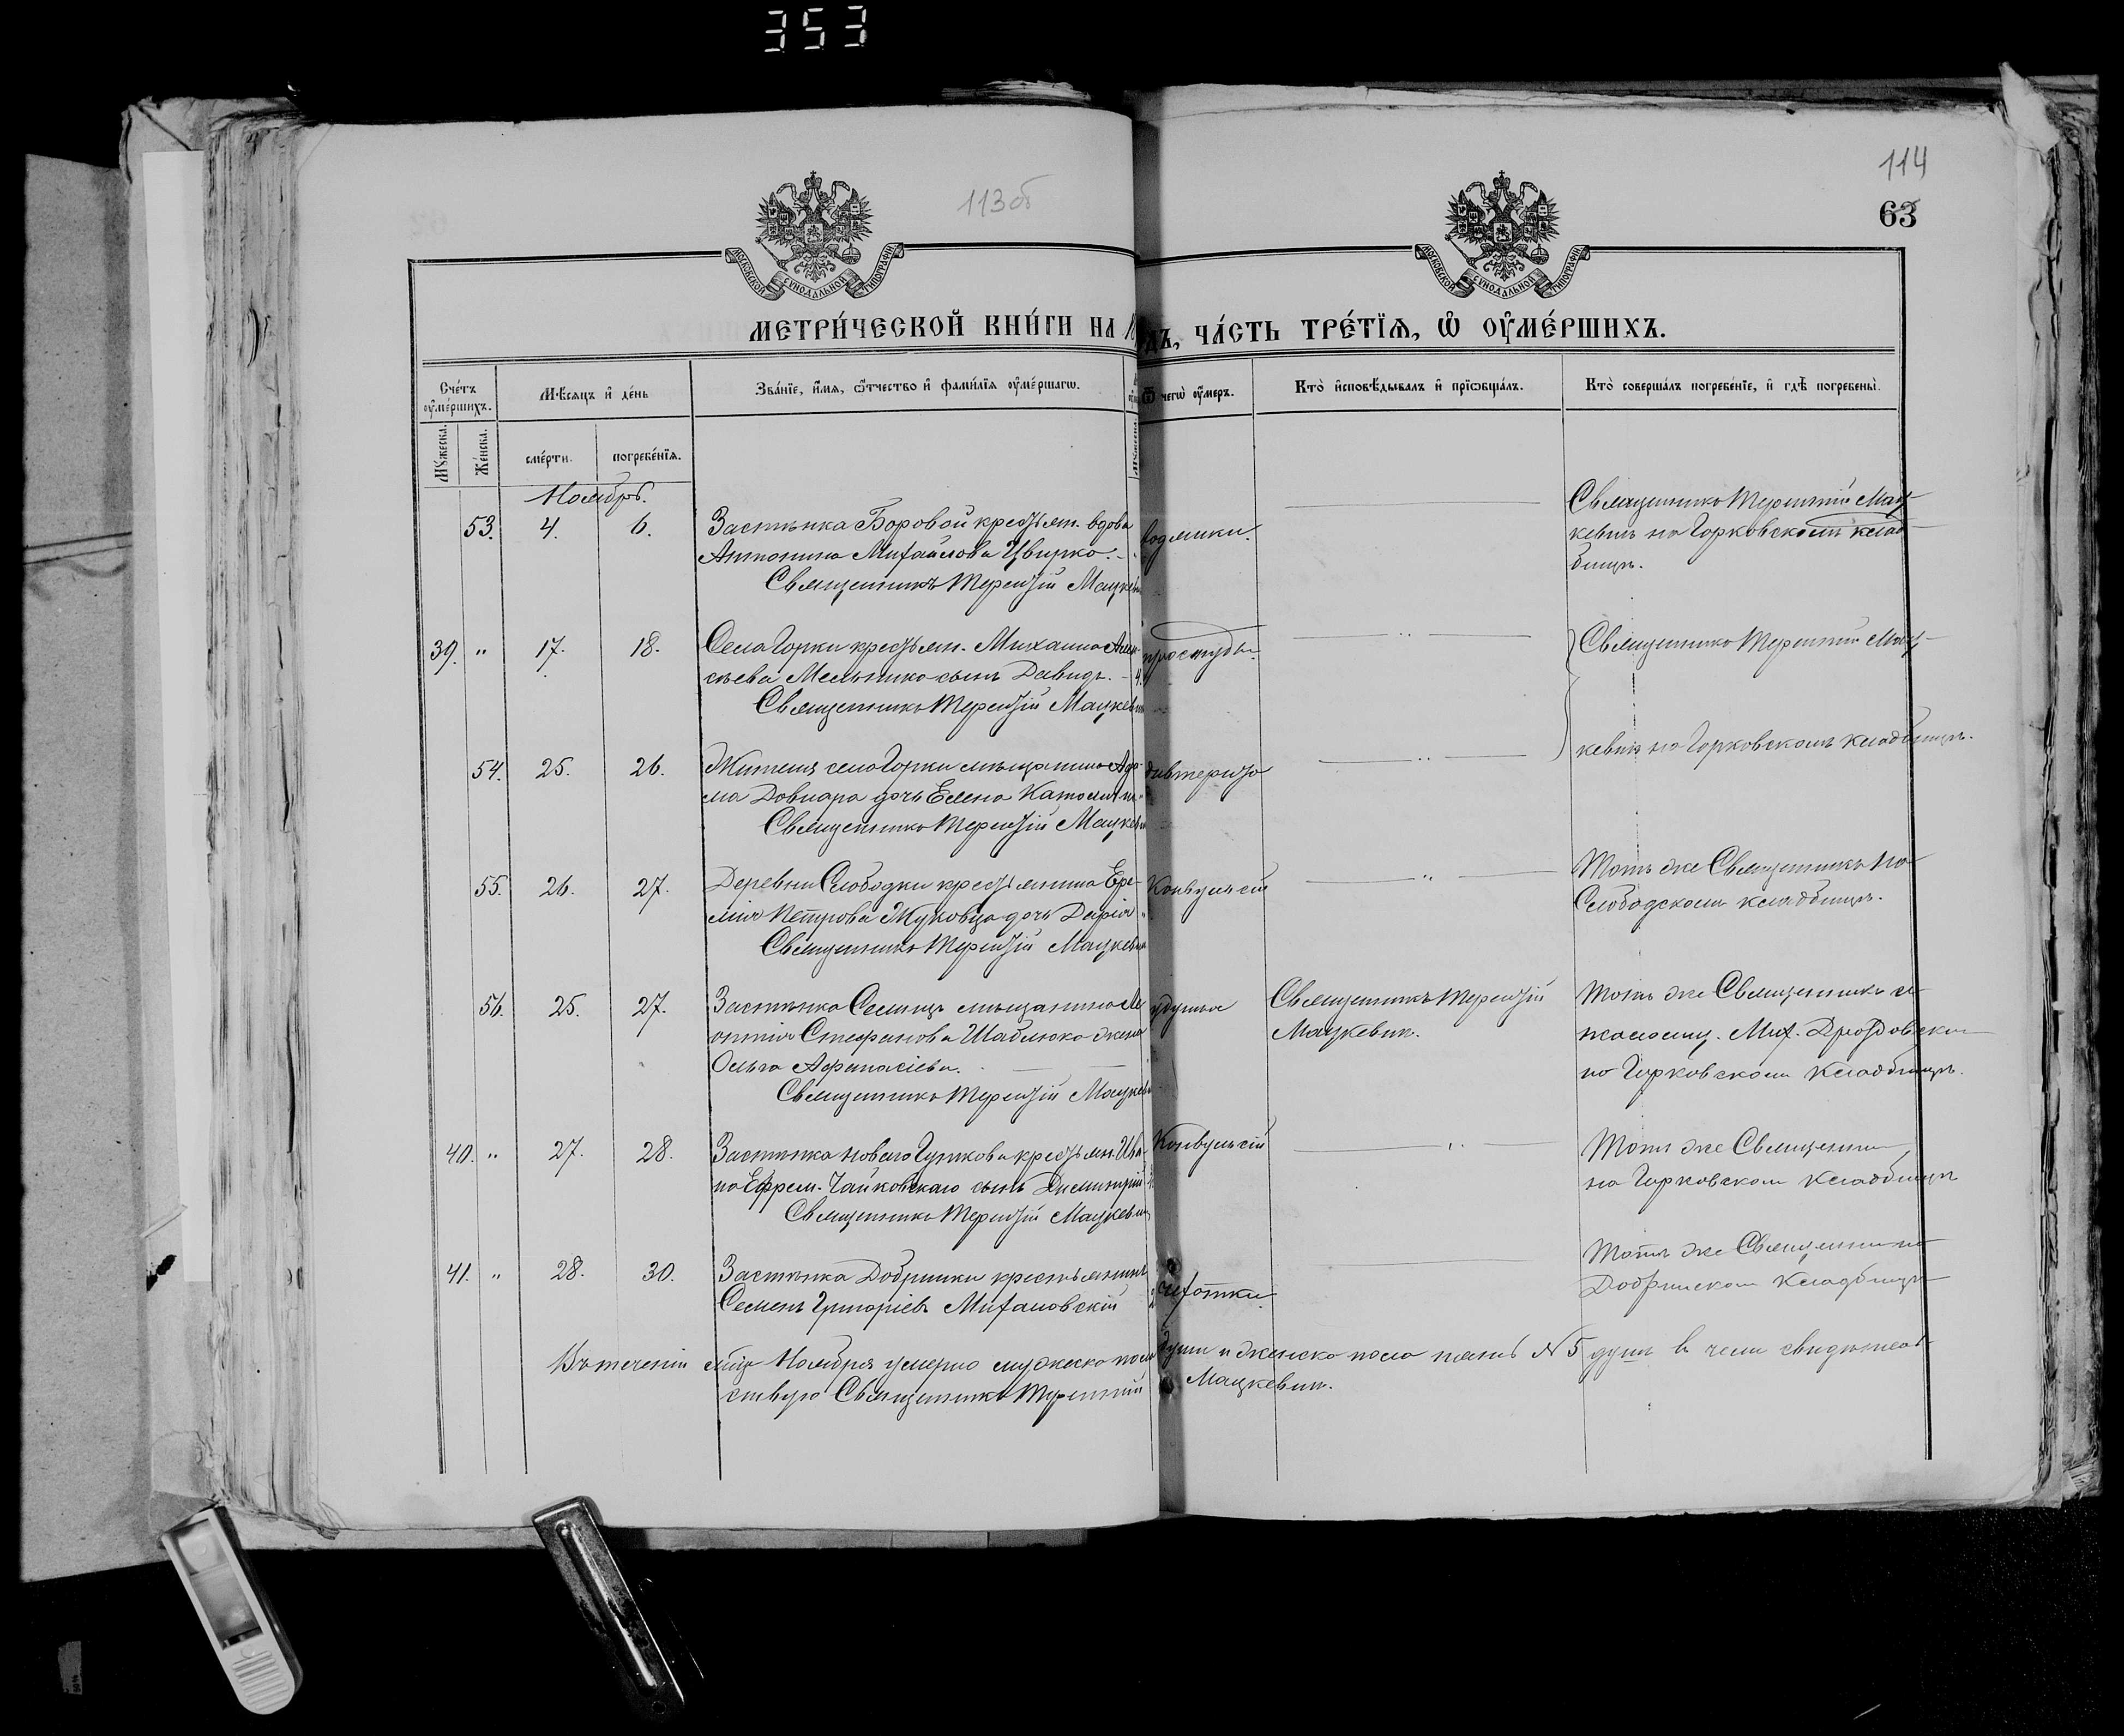 353
113об
114
63
МОСКОВСКОЙ СѴНОДАЛЬНОЙ ТИПОГРАФІИ
МОСКОВСКОЙ СѴНОДАЛЬНОЙ ТИПОГРАФІИ
МЕТРИ́ЧЕСКОЙ КНИ́ГИ НА
ДЪ, ЧА́СТЬ ТРЕ́ТЇѦ, Ѽ ОУ҆МЕ́РШИХЪ.
Сче́тъ оу҆ме́ршихъ.
Мѣ́сяцъ и҆ де́нь
Зва́нїе, и҆́мя, ѻ҆́тчество и҆ фами́лїя оу҆ме́ршагѡ.
Ѿ чегѡ̀ оу҆́меръ.
Кто̀ и҆сповѣ́дывалъ и҆ прїѡбща́лъ.
Кто̀ соверша́лъ погребе́нїе, и҆ гдѣ̀ погребены̀.
Мꙋ́жеска.
Же́нска.
сме́рти.
погребе́нїя.
Ноябрь.
53. 4. 6. Застѣнка Боровой крестьян. вдова
Антонина Михайлова Цвирко.
Священникъ Терентій Мацкевичъ
водянки.
Священникъ Терентій Мац-
кевичъ на Горковскомъ клад-
бищѣ.
39. " 17. 18. Села Горки крестьян. Михаила Алек-
сѣева Мельника сынъ Давидъ.
Священникъ Терентій Мацкевичъ
простуды.
Священникъ Терентій Мац-
кевичъ на Горковскомъ кладбищѣ.
54. 25. 26. Жителя села Горки мѣщанина Ада-
ма Довнара дочь Елена
Священникъ Терентій Мацкевичъ
дифтерита
55. 26. 27. Деревни Слободки крестьянина Ере-
мія Петрова Жуковца дочь Дарія
Священникъ Терентій Мацкевичъ
Конвульсій
Тотъ же Священникъ на
Слободскомъ кладбищѣ.
56. 25. 27. Застѣнка мѣщанина Ле-
онтія Стефанова Шаблюка жена
Ольга Афанасіева.
Священникъ Терентій Мацкевичъ
удушья
Священникъ Терентій
Мацкевичъ.
Тотъ же Священникъ съ
псаломщ. Мих. Дроздовским
на Горковскомъ Кладбищѣ.
40. " 27. 28. Застѣнка Новаго Гуткова крестьян. Ива-
на Ефрем. Чайковскаго сынъ Димитрій
Священникъ Терентій Мацкевичъ
Конвульсій
Тотъ же Священни
на Горковском Кладбищѣ
41. " 28. 30. Застѣнка Добринки крестьянинъ
Семенъ Григоріевъ
чахотки.
Тотъ же Священни на
Добринском Кладбищѣ
Въ теченіи мѣс. Ноября умерло мужеска пола души и женска пола пять № 5 душъ въ чемъ свидѣтель-
ствую Священникъ Терентій Мацкевичъ.